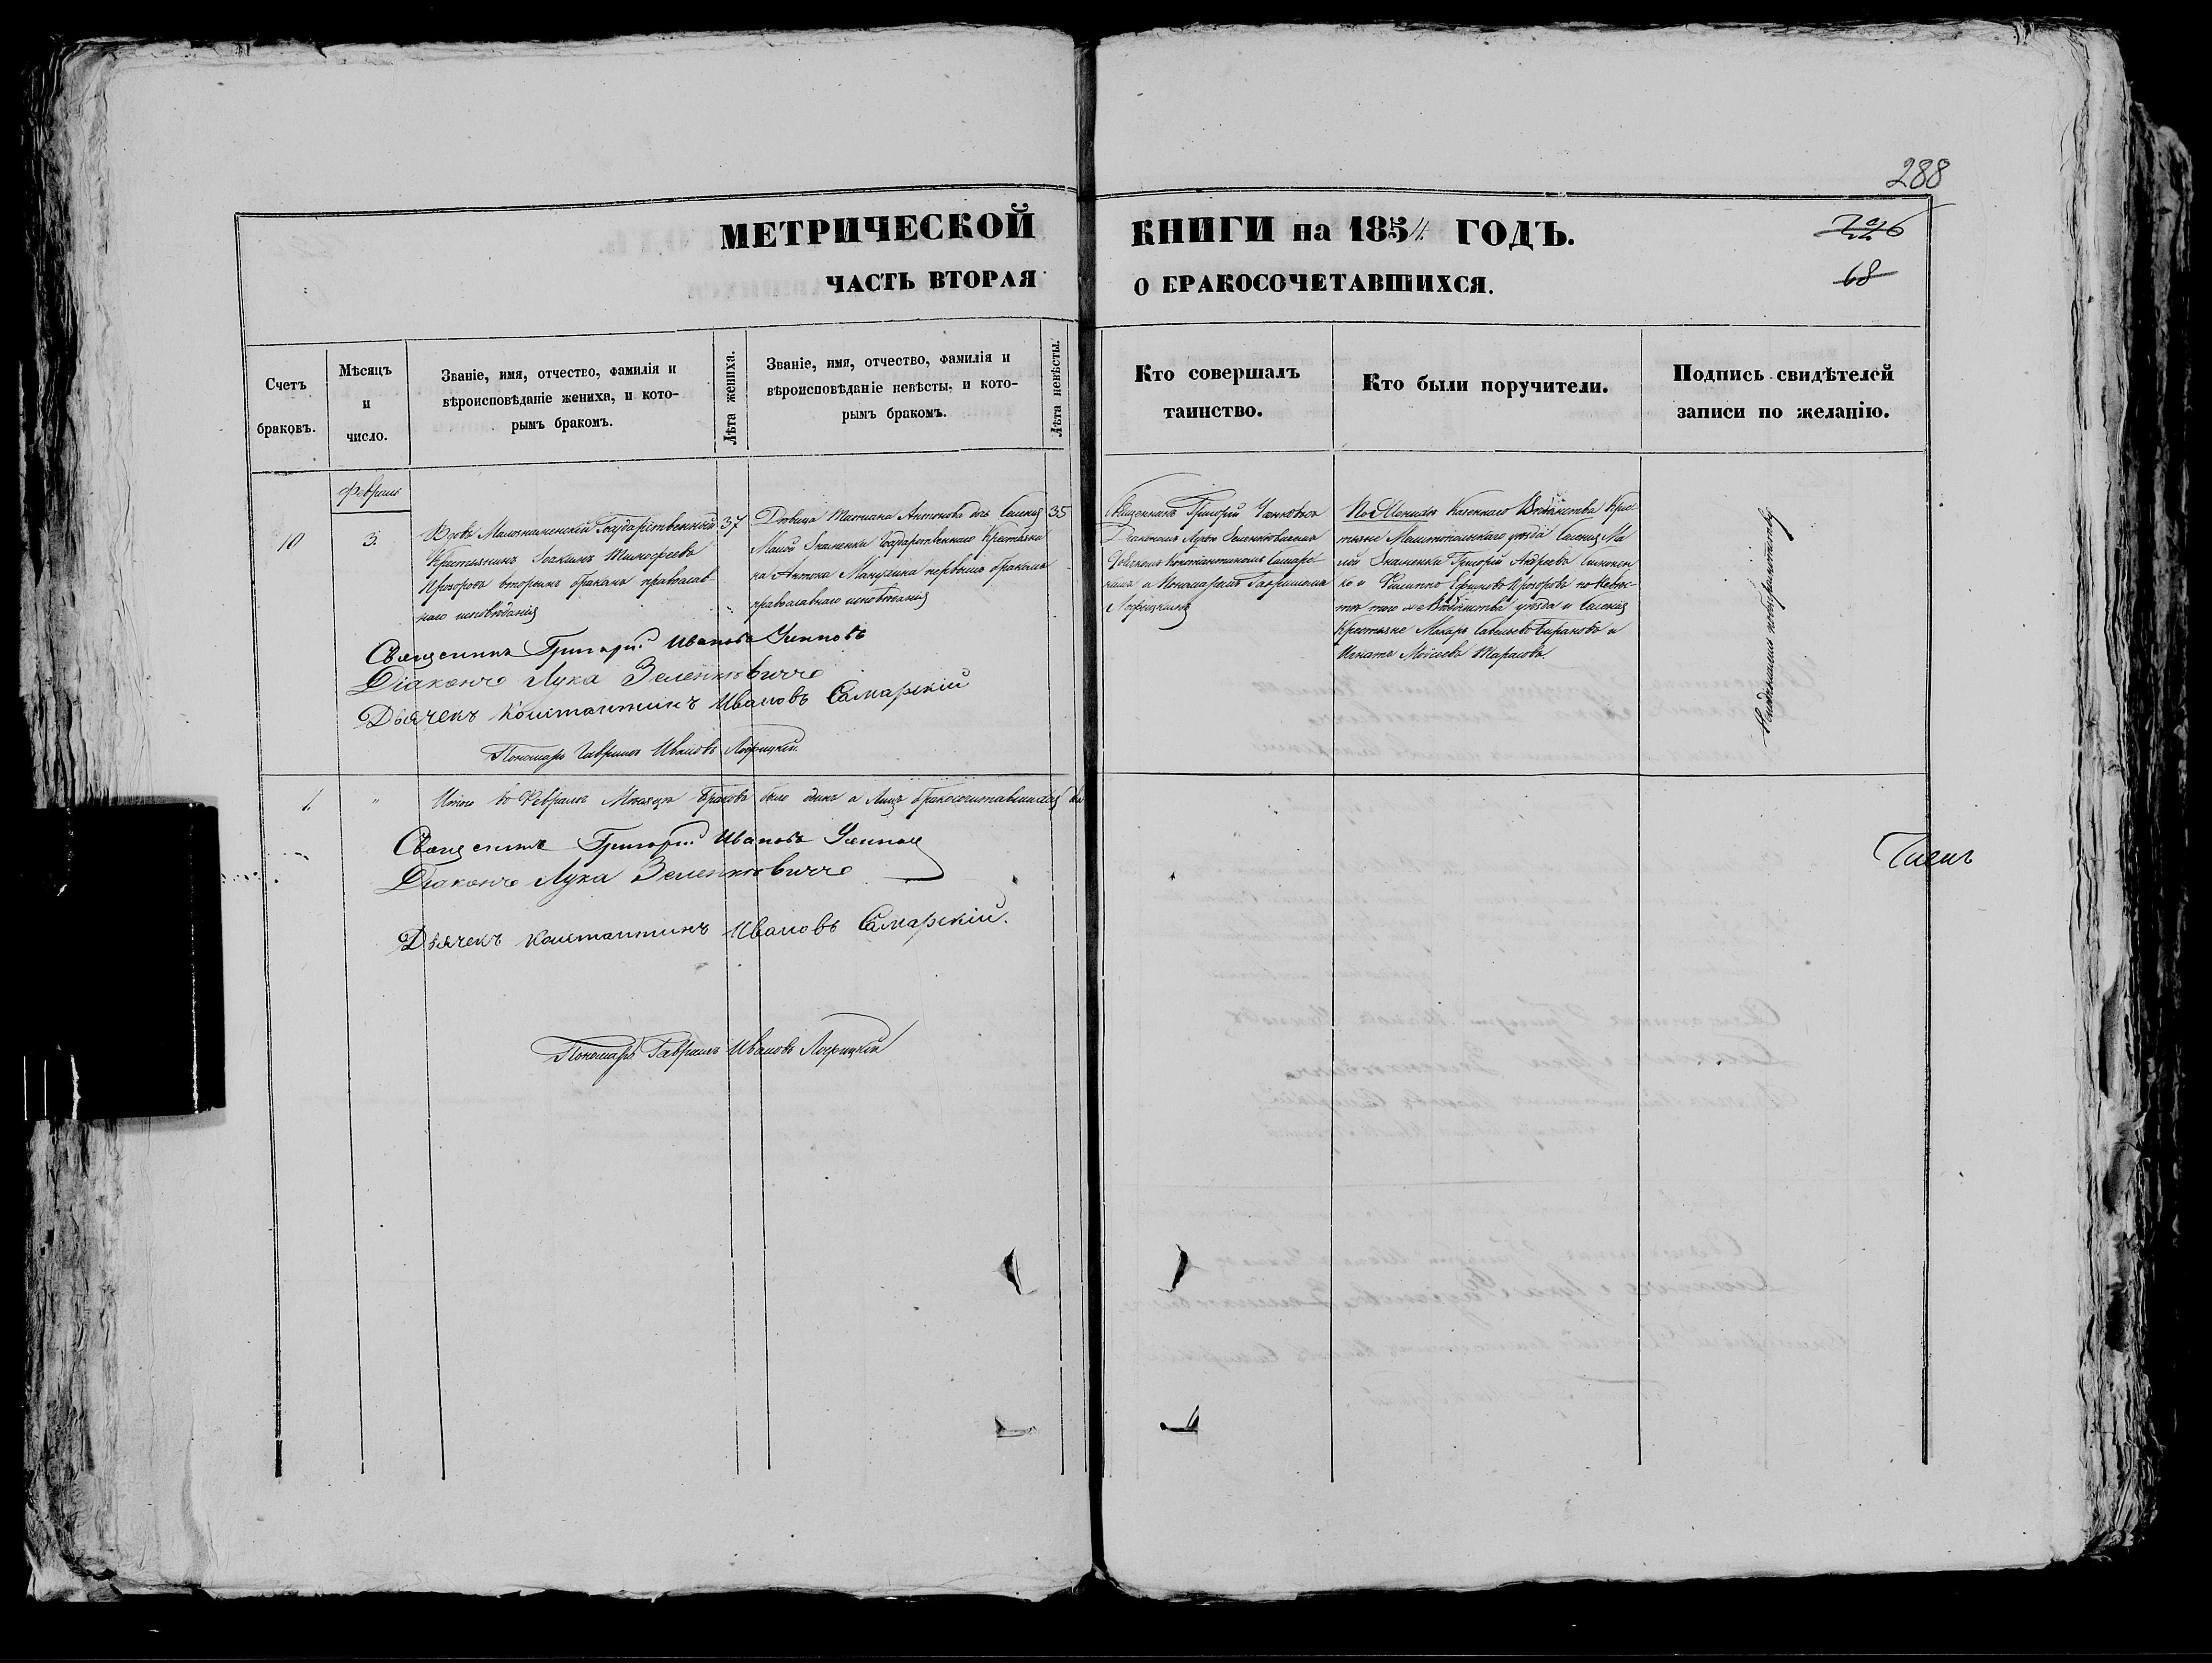 288
МЕТРИЧЕСКОЙ КНИГИ на 1854 ГОДЪ.
68
ЧАСТЬ ВТОРАЯ О БРАКОСОЧЕТАВШИХСЯ.
Счетъ браковъ.
Мѣсяцъ и число.
Званіе, имя, отчество, фамилія и
вѣроисповѣданіе жениха, и кото-
рымъ бракомъ.
Лѣта жениха.
Званіе, имя, отчество, фамилія и
вѣроисповѣданіе невѣсты, и кото-
рымъ бракомъ.
Лѣта невѣсты.
Кто совершалъ
таинство.
Кто были поручители.
Подпись свидѣтелей
записи по желанію.
10
Февраль
3.
Вдовъ Малознаменскій Государственный
Крестьянинъ Іоакимъ Тимофеевъ
Прозоровъ вторымъ бракомъ православ
наго исповѣданія
37
Дѣвица Татиана Антонова дочь Селенія
Малой Знаменки Государственнаго Крестьяни
на Антона первымъ бракомъ
православнаго исповѣданія
35
Священникъ Григорій
Діакономъ Лукою Зеленкевичемъ
Константиномъ Самарс
кимъ и Пономаремъ Гавриломъ
По Женихѣ Казеннаго Вѣдомства Крес
тьяне Мелитопольскаго уѣзда Селенія Ма
лой Знаменки Григорій Андреевъ
и Филиппъ Ефимовъ Прозоровъ по Невѣс
тѣ того же Вѣдомства уѣзда и Селенія
Крестьяне Макаръ Савельевъ и
Игнатъ Моисеевъ Тарасовъ.
Священникъ Григорій Ивановъ
Діаконъ Лука Зеленкевичъ
Дьячекъ Константинъ Ивановъ Самарскій
Пономарь Гавріилъ Ивановъ
1. " Итого въ Февралѣ Мѣсяцѣ браковъ было одинъ а Лицъ бракосочетавшихся два
Священникъ Григорій Ивановъ
Діаконъ Лука Зеленкевичъ
Дьячекъ Константинъ Ивановъ Самарскій.
Пономарь Гавріилъ Ивановъ